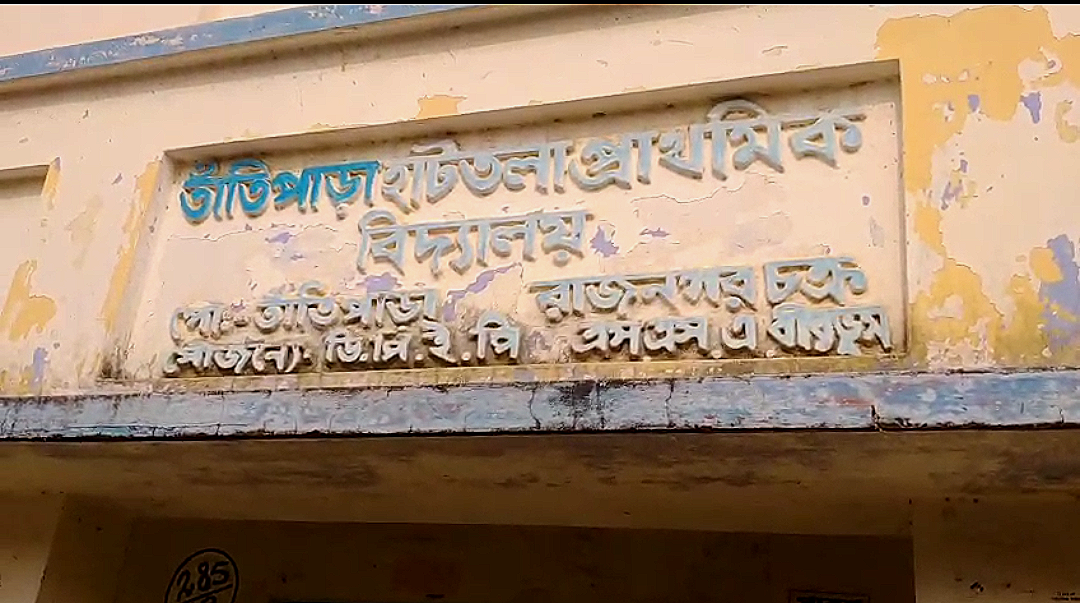 তাঁতিপাড়া হাটতলা প্রাথমিক
বিদ্যালয়
পোঃ- তাঁতিপাড়া রাজনগর চক্র
সৌজন্যে ডি.পি.ই.পি এসএসএ বীরভূম
285